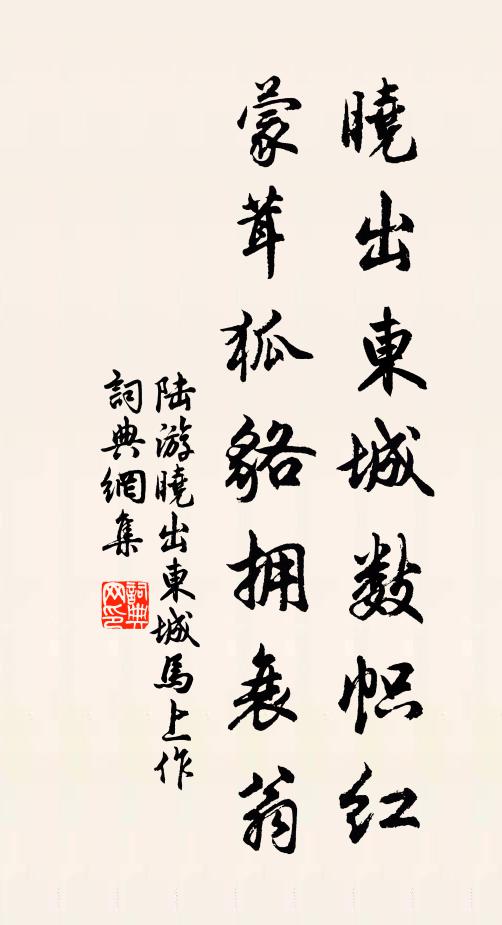 曉出東城數帜红
蒙茸狐貉拥衰翁
陆游曉出東城馬上作
詞典網集
詞典网印